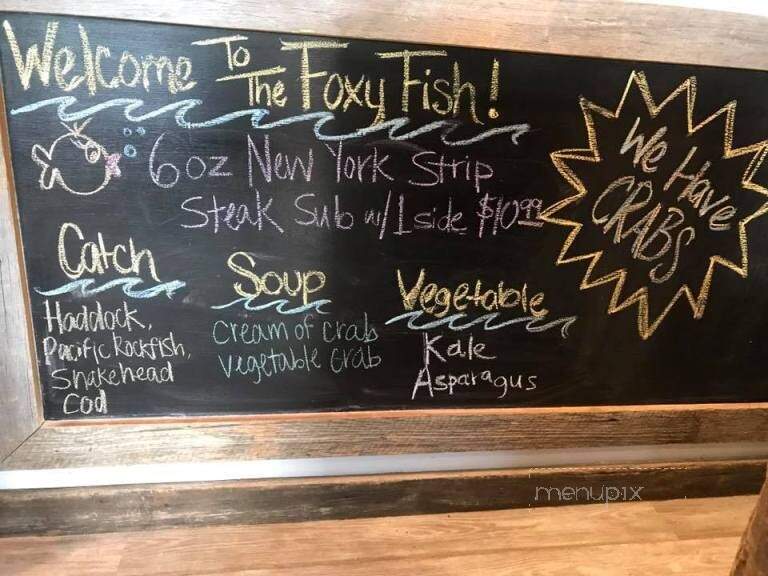 Welcome To The Foxy Fish!
6oz New York Strip
Steak Sub w/1 side $10.99
We Have
CRABS
Catch
Haddock,
Pacific Rockfish,
Snakehead
Cod
Soup
cream of crab
vegetable crab
Vegetable
Kale
Asparagus
menupix